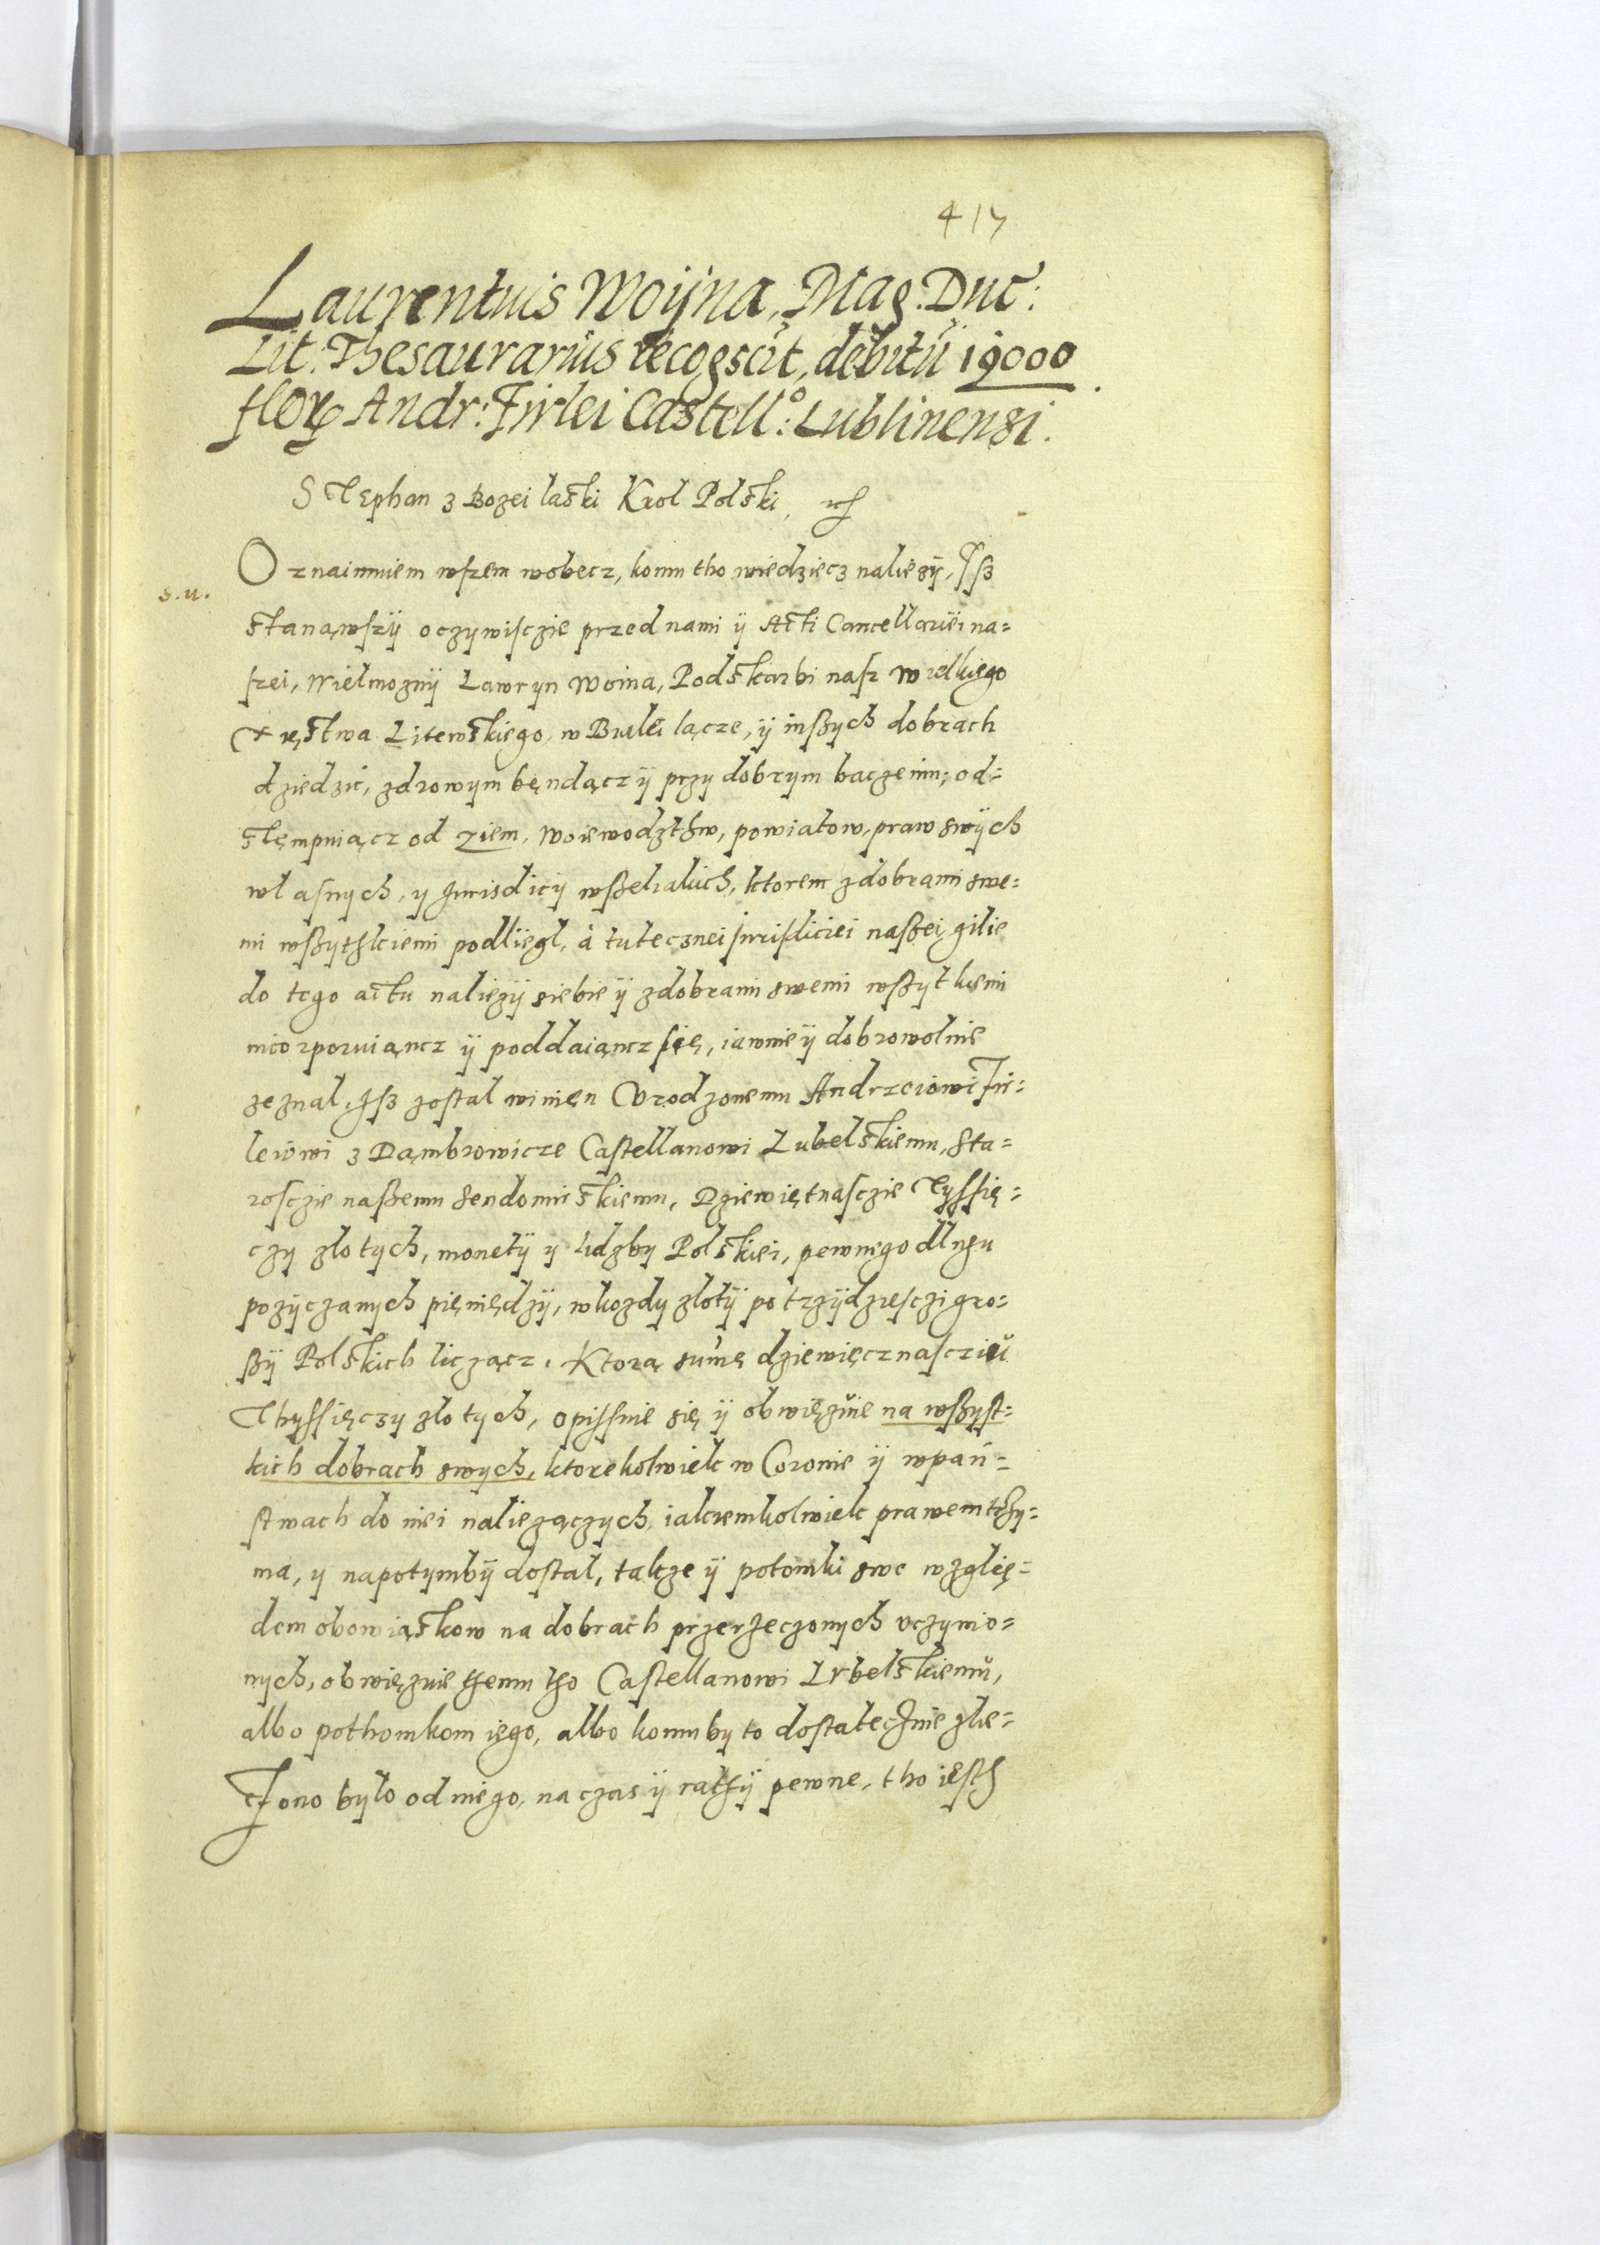 417
Laurentuis Woÿna, Mag. Duc:
Lit: Thesaurarius recogscit, debitū 19000
flor Andr: Firlei Castell:° Lublinensi.
Stephan z Bozei laski Krol Polski,
Oznaimuiem wszem wobecz, komu tho wiedziecz naliezÿ, Isz
s.u.
stanąwszÿ oczywisczie przed nami ÿ Acti Cancellariei na=
szei, Wielmoznÿ Lawryn Woina, Podskarbi nasz Wielkiego
Xięstwa Litewskiego, w ÿ inszych dobrach
dziedzic, zdrowym bęndącz ÿ przy dobrym baczeniu, od=
stęmpuiącz od Ziem, Woiewodzthw, powiatow, praw swÿch
własnych, y Jurisdicÿ wszelakich, ktorem z dobrami swe=
mi wszythkiemi podliegl, à tutecznei Jurisdiciei naszei, gilie
do tego actu naliezÿ siebie ÿ z dobrami swemi wszytkiemi
incorporuiąncz ÿ poddaiąncz się, iawnie ÿ dobrowolnie
zeznal, Jsz zostal winięn Vrodzonemu Andrzeiowi Fir=
leiowi z Dąmbrowicze Castellanowi Lubelskiemu, Sta=
rosczie naszemu Sendomirskiemu, Dziewiętnasczie Tyssię=
czy zlotych, monetÿ y lidzby Polskiei, pewnego dlugu
pozyczanych pięniędzÿ, w kozdy zlotÿ po trzÿdziesczi gro=
szÿ Polskich liczącz. Ktorą sumę dziewięcznasczie
Thyssięczy zlotych, opissuie się ÿ obwięzuie na wszyst=
kich dobrach swych, ktorekolwiek w Coronie ÿ w pań=
stwach do niei naliezączych, iakiemkolwiek prawem thrzy=
ma, y napotymbÿ dostal, takze ÿ potomki swe wzglię=
dem obowiąskow na dobrach przerzeczonych vczynio=
nych, obwięzuie themu tho Castellanowi Lubelskiemu,
albo pothomkom iego, albo komu by to dostatecznie zlie=
cono bylo od niego, na czas ÿ rathÿ pewne, tho iesth